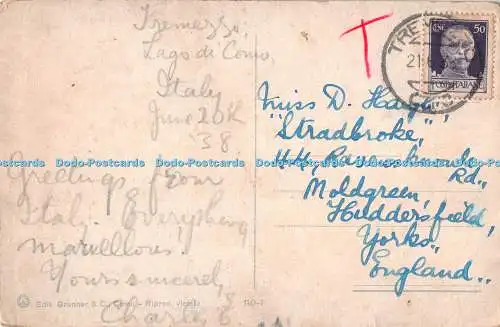 Tremezzo,
Lago di Como,
Italy
June 20th
'38
Greetings from
Italy. Everything
marvellous.
Yours sincerely,
Charlie
T
TRE
21
CENT. 50
POSTE ITALIANE
Miss D.
"Stradbroke,"
44,
Rd.,
Moldgreen,
Huddersfield,
Yorks,
England.
Dodo-Postcards Dodo-Postcards Dodo-Postcards Dodo-Postcards Dodo-Postcards
Dodo-Postcards Dodo-Postcards Dodo-Postcards Dodo-Postcards Dodo-Postcards
Ediz. Brunner & C., Como - Riprod. vietata
110-1